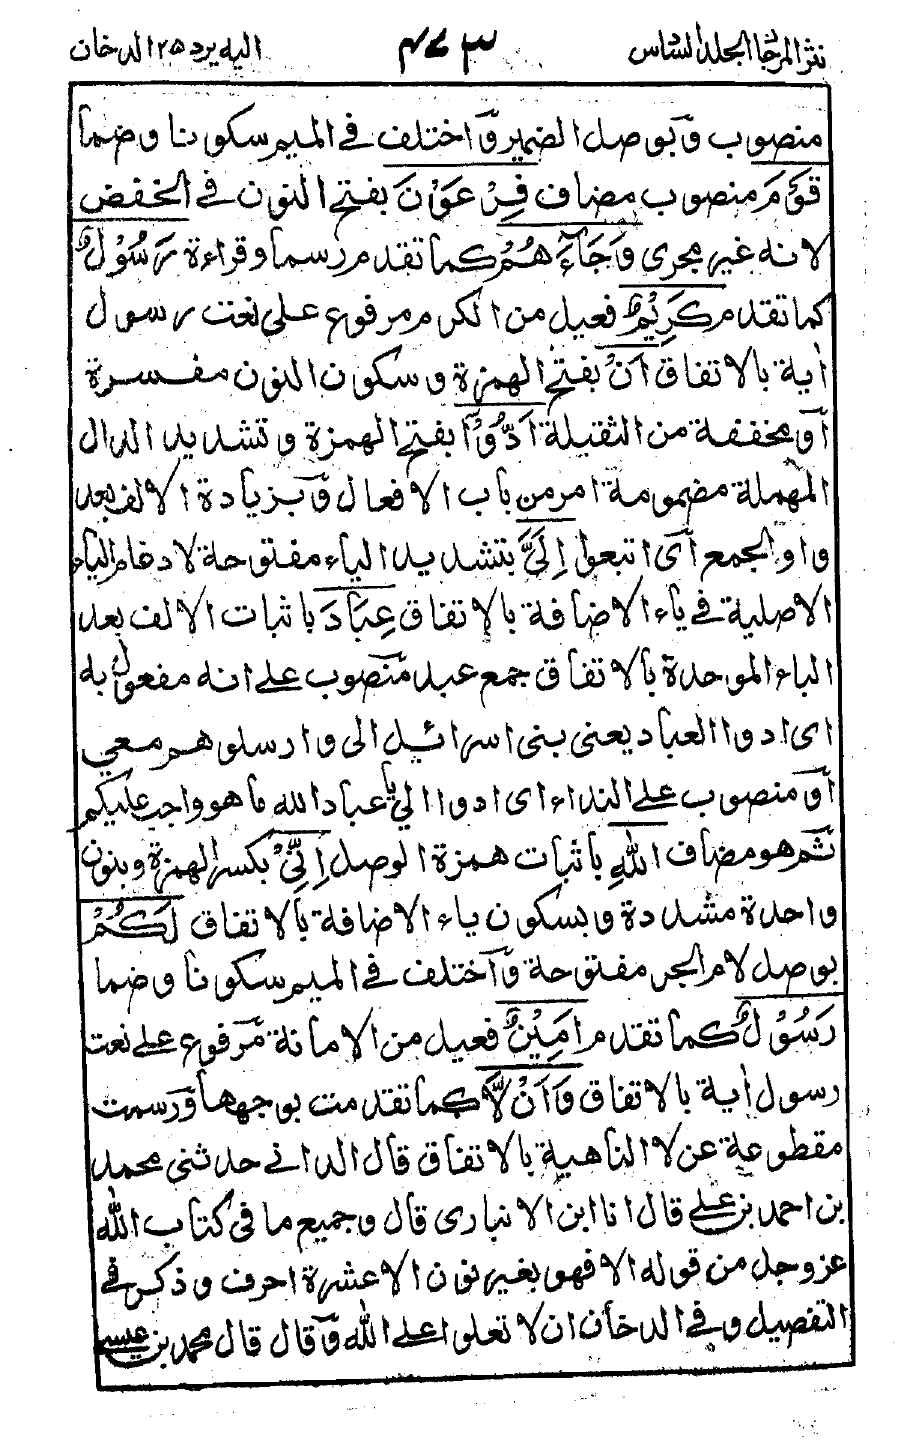 نثر المرجان المجلد السادس ۴۶۳ اليه يرد ۲۵ الدخان
منصوب وَ بوصل الضمير وَاختلف في الميم سكونا وضما
قَوْمَ منصوب مضاف فِرْعَوْنَ بفتح النون في الخفض
لانه غير مجرى وَجَاءَهُمْ كما تقدم رسما وقراءة رَسُوْلٌ
كما تقدم كَرِيْمٌ فعيل من الكرم مرفوع على نعت رسول
أية بالاتفاق اَنْ بفتح الهمزة وسكون النون مفسرة
اَوْ مخففة من الثقيلة اَدُّوْۤا بفتح الهمزة وتشديد الدال
المهملة مضمومة امر من باب الافعال وَبزيادة الالف بعد
واو الجمع اَى اتبعوا اِلَىَّ بتشديد الياء مفتوحة لادغام الياء
الاصلية في ياء الاضافة بالاتفاق عِبَادَ باثبات الالف بعد
الباء الموحدة بالاتفاق جمع عبد منصوب على انه مفعول به
اى ادوا العباد يعنى بنى اسرائيل الى وارسلوهم معي
اَوْ منصوب على النداء اى ادوا الي يا عباد الله ما هو واجب عليكم
ثم هو مضاف اللهِ باثبات همزة الوصل اِنِّىْ بكسر الهمزة وبنون
واحدة مشددة وبسكون ياء الاضافة بالاتفاق لَكُمْ
بوصل لام الجر مفتوحة وَاختلف في الميم سكونا وضما
رَسُوْلٌ كما تقدم اَمِيْنٌ فعيل من الامانة مرفوع على نعت
رسول أية بالاتفاق وَاَنْ لَّا كما تقدمت بوجهها وَرسمت
مقطوعة عن لا الناهية بالاتفاق قال الداني حدثنى محمد
بن احمد بن على قال انا ابن الانبارى قال وجميع ما فى كتاب الله
عز وجل من قوله الا فهو بغير نون الا عشرة احرف وذكر في
التفصيل وفي الدخان ان لا تعلوا على الله وَقال قال محمد بن عيسى